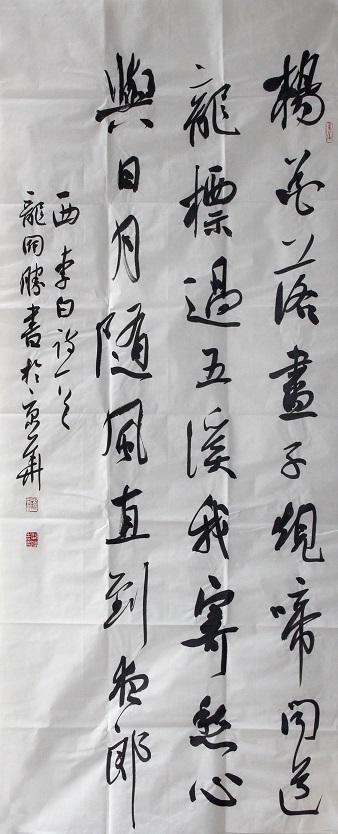 楊花落盡子規啼聞道
龍標過五溪我寄愁心
與日月隨風直到夜郎
西 李白詩一首
龍開勝書於京華